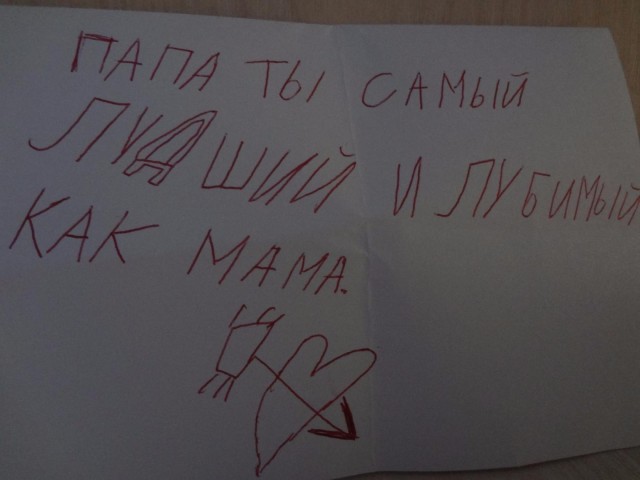 ПАПА ТЫ САМЫЙ
ЛУДШИЙ И ЛУБИМЫЙ
КАК МАМА.